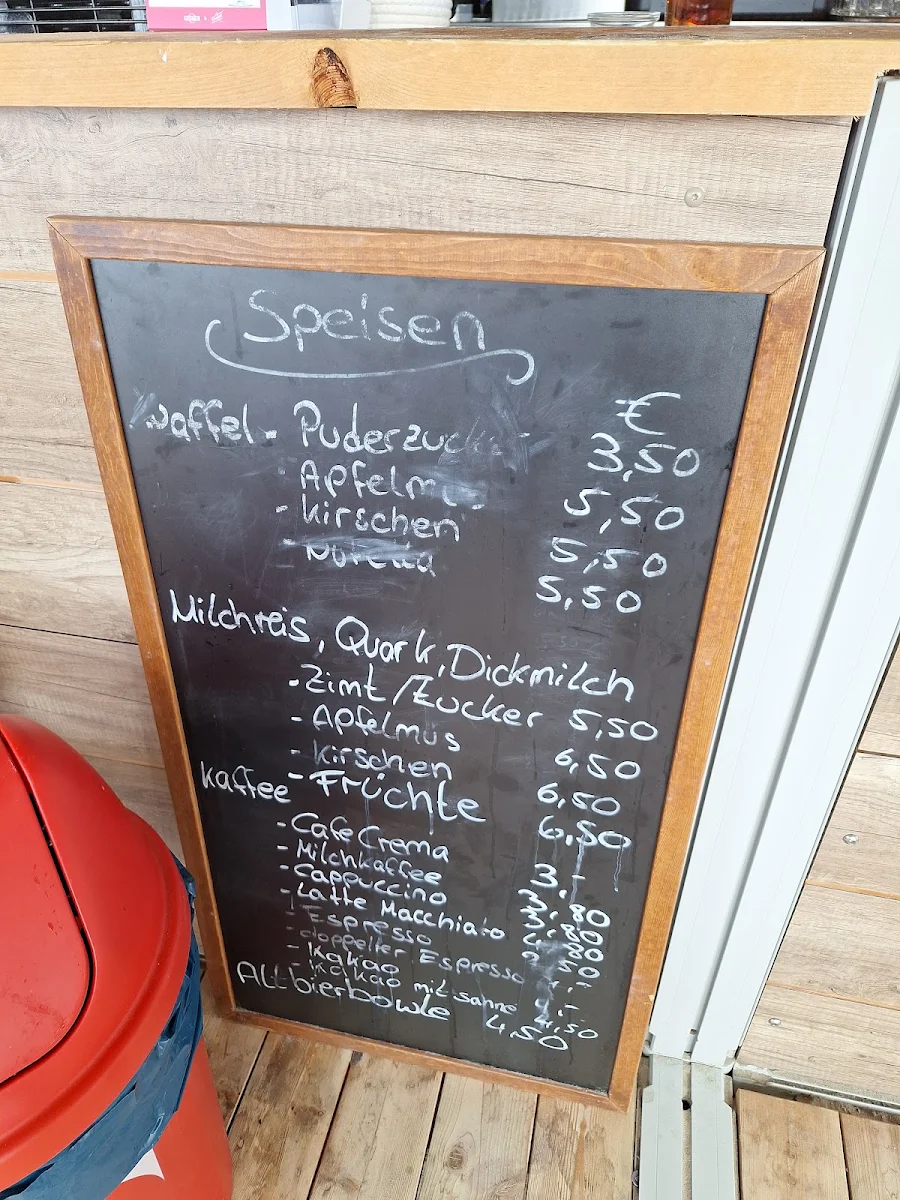 Speisen
€
Waffel - Puderzucker 3,50
- Apfelm 5,50
- Kirschen 5,50
- Nutella 5,50
Milchreis, Quark, Dickmilch
- Zimt/Zucker 5,50
- Apfelmus 6,50
- Kirschen 6,50
- Früchte 6,50
Kaffee
- Cafe Crema 3,-
- Milchkaffee 3,80
- Cappuccino
- Latte Macchiato
- Espresso
- doppelter Espresso
- Kakao 4,-
- Kakao mit Sahne 4,50
Altbierbowle 4,50